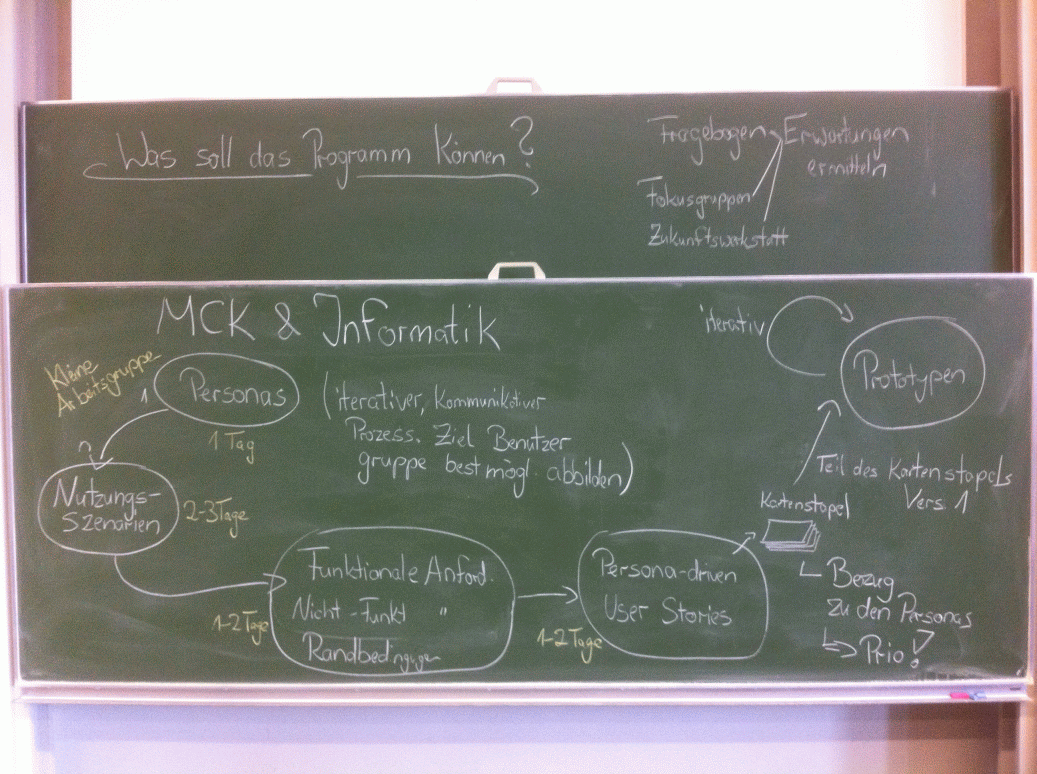 Was soll das Programm Können?
Fragebogen
Erwartungen
ermitteln
Fokusgruppen
Zukunftswerkstatt
MCK & Informatik
Kleine
Arbeitsgruppe
1
Personas
1 Tag
(iterativer, Kommunikativer
Prozess. Ziel Benutzer
gruppe best mögl. abbilden)
2
Nutzungs-
szenarien
2-3 Tage
Funktionale Anford.
Nicht-Funkt "
Randbedingugen
1-2 Tage
Persona-driven
User Stories
1-2 Tage
Kartenstapel
Bezug
zu den Personas
Prio!
Teil des Kartenstapels
Vers. 1
iterativ
Prototypen